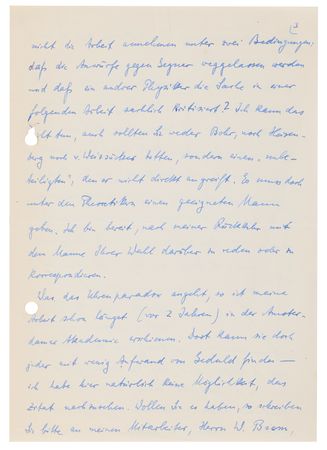 3
nicht die Arbeit annehmen unter zwei Bedingungen;
daß die Anwürfe gegen Gegner weggelassen werden
und daß ein andrer Physiker die Sache in einer
folgenden Arbeit sachlich kritisiert? Ich kann das
nicht tun, auch sollten Sie weder Bohr, noch Heisen-
berg noch v. Weizsäcker bitten, sondern einen „unbe-
teiligten“, den er nicht direkt angreift. Es muss doch
unter den Theoretikern einen geeigneten Mann
geben. Ich bin bereit, nach meiner Rückkehr mit
dem Manne Ihrer Wahl darüber zu reden oder zu
korrespondieren.
Was das Uhrenparadox angeht, so ist meine
Arbeit schon längst (vor 2 Jahren) in der Amster-
damer Akademie erschienen. Dort kann sie doch
jeder mit wenig Aufwand von Geduld finden —
ich habe hier natürlich keine Möglichkeit, das
Zitat nachzusehen. Wollen Sie es haben, so schreiben
Sie bitte an meinen Mitarbeiter, Herrn W. Biem,